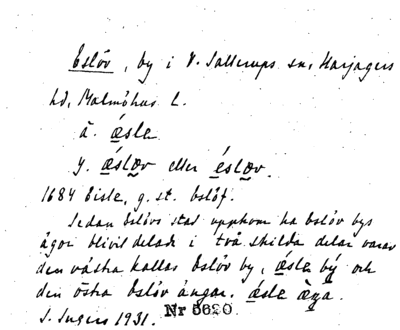 Eslöv, by i V. Sallerups sn, Harjagers
hd, Malmöhus L.
ä. ǽsle
y. ǽslœv eller éslœv.
1684 Eisle, g. st. Eslöf.
Sedan Eslövs stad uppkom ha Eslöv bys
ägor blivit delade i två skilda delar varav
den västra kallas Eslöv by, ǽsle bý och
den östra Eslöv ängar.
I. Ingers 1931.
Nr 5620